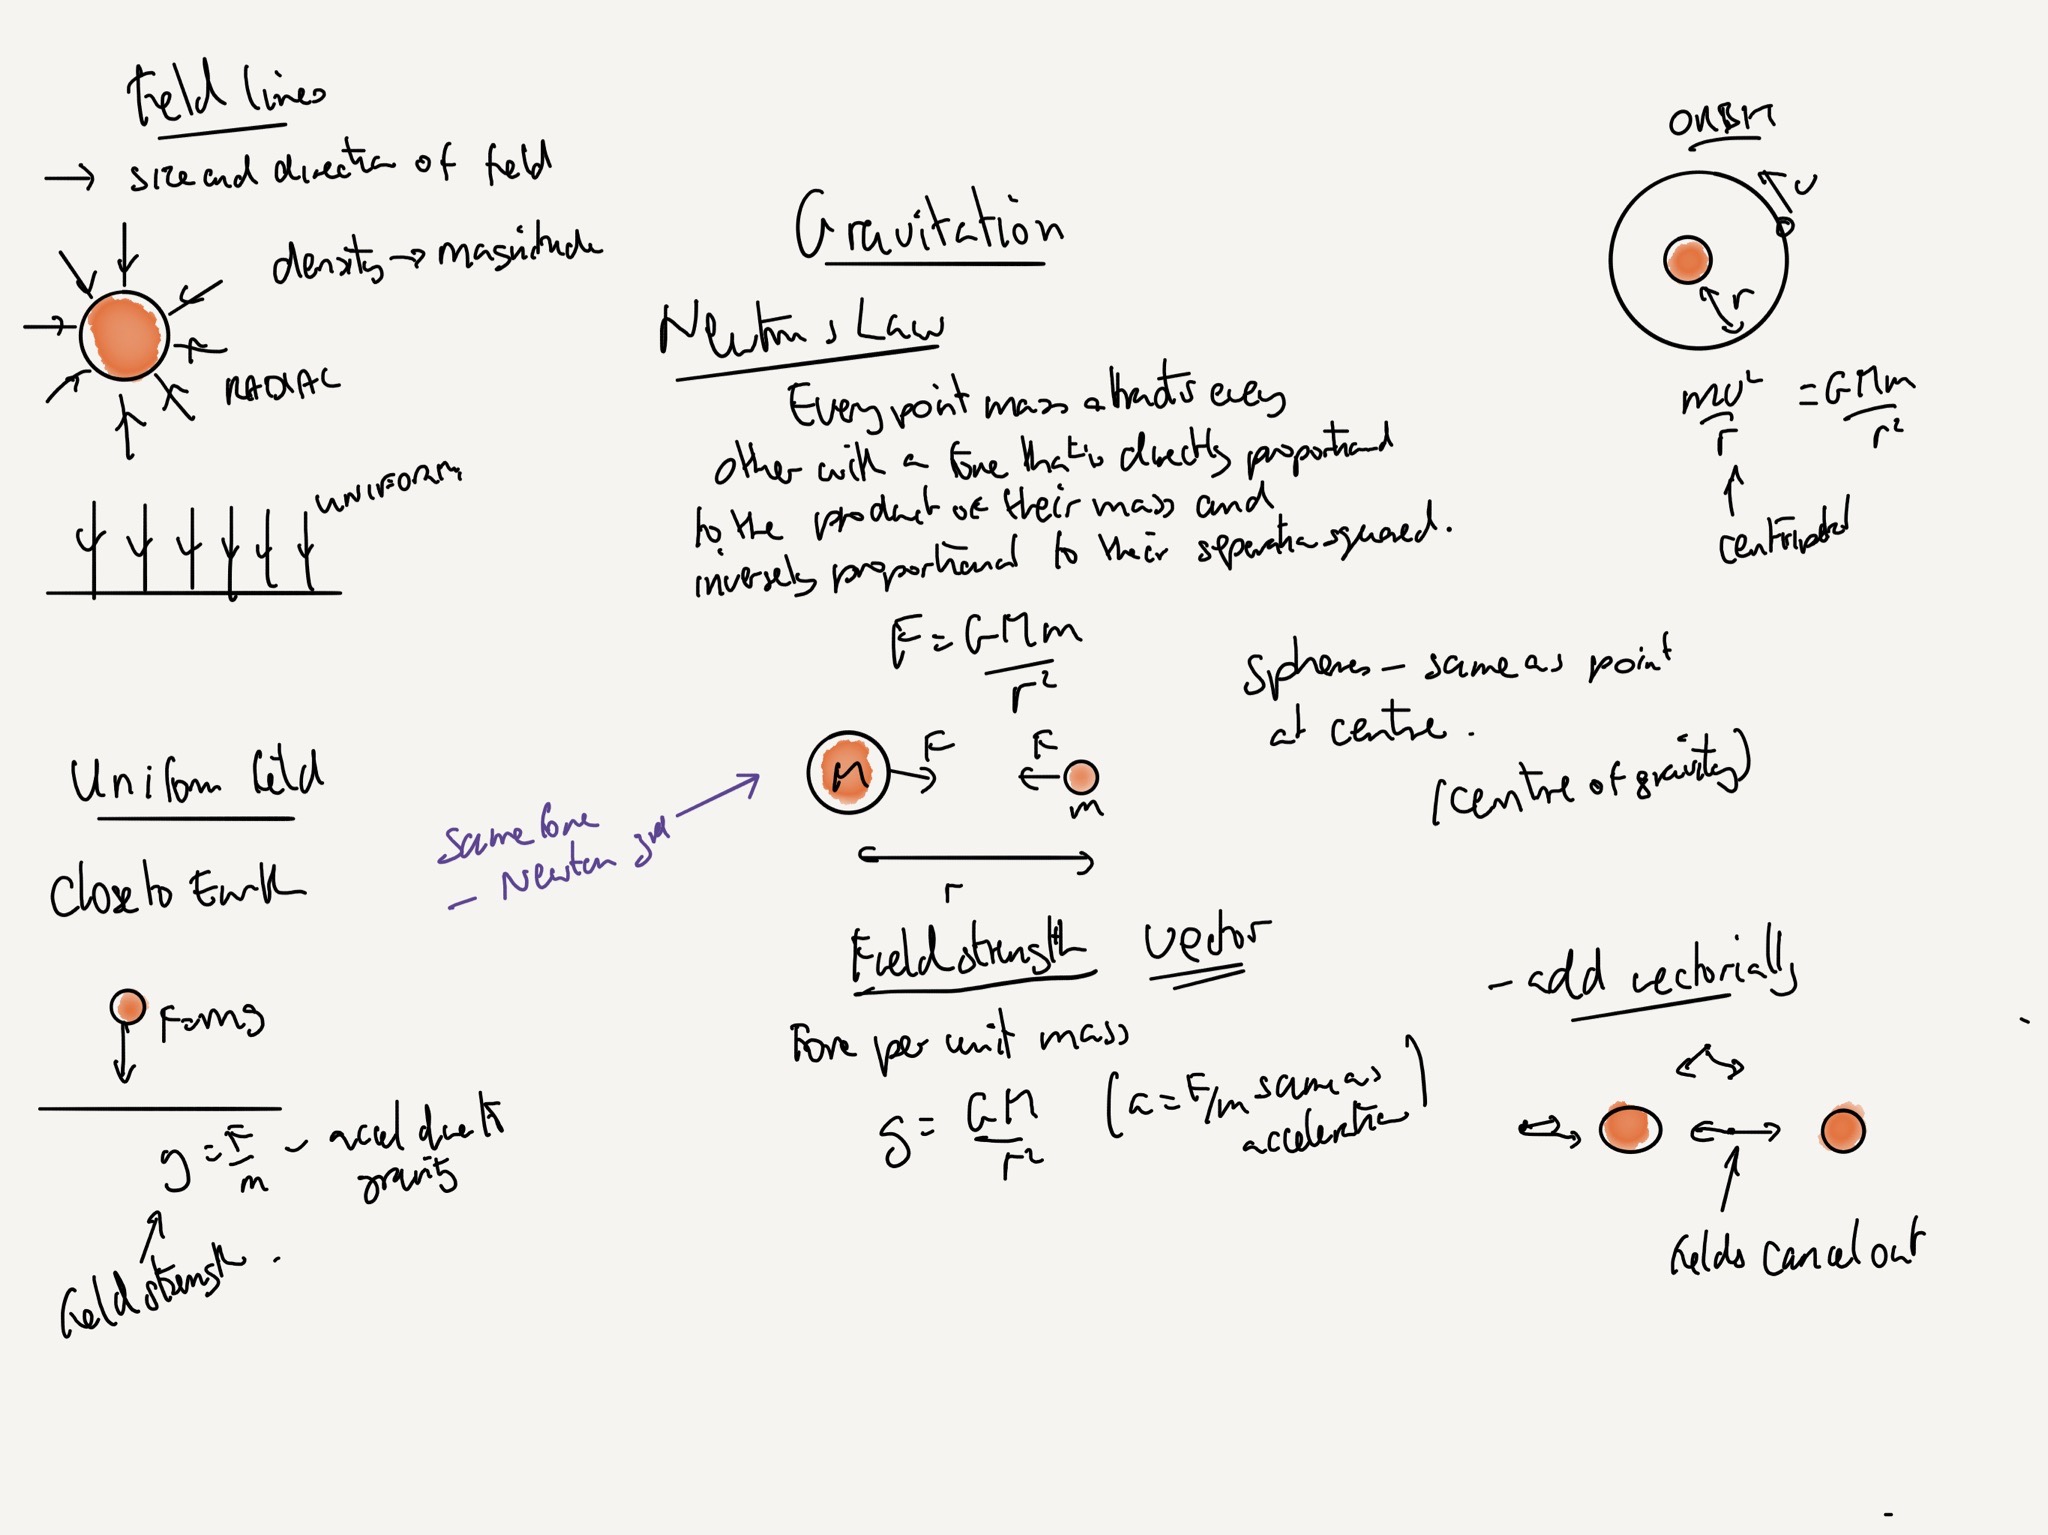 Field lines
→ size and direction of field
density → magnitude
RADIAL
UNIFORM
Uniform field
Close to Earth
F=mg
g = F/m - accel due to
gravity
field strength.
Gravitation
Newton's Law
Every point mass attracts every
other with a force that is directly proportional
to the product of their mass and
inversely proportional to their separation squared.
F = GMm
r²
M
F
F
m
r
same force
- Newton 3rd
Field strength vector
Force per unit mass
g = GM
r²
(a = F/m same as
acceleration)
ORBIT
v
r
mv² = GMm
r r²
centripetal
Spheres - same as point
at centre.
(centre of gravity)
- add vectorially
fields cancel out